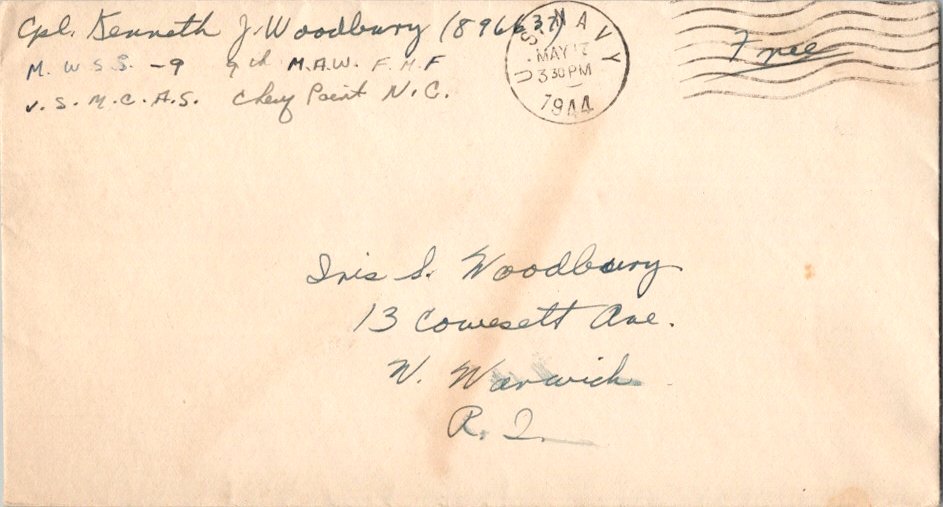 Cpl. Kenneth J. Woodbury (896637)
M. W. S. S. -9 9th M.A.W. F.M.F
U.S.M.C.A.S. Cherry Point N.C.
U.S. NAVY
MAY
3 30 PM
1944
Free
Iris S. Woodbury
13 Cowesett Ave.
W. Warwick
R.I.